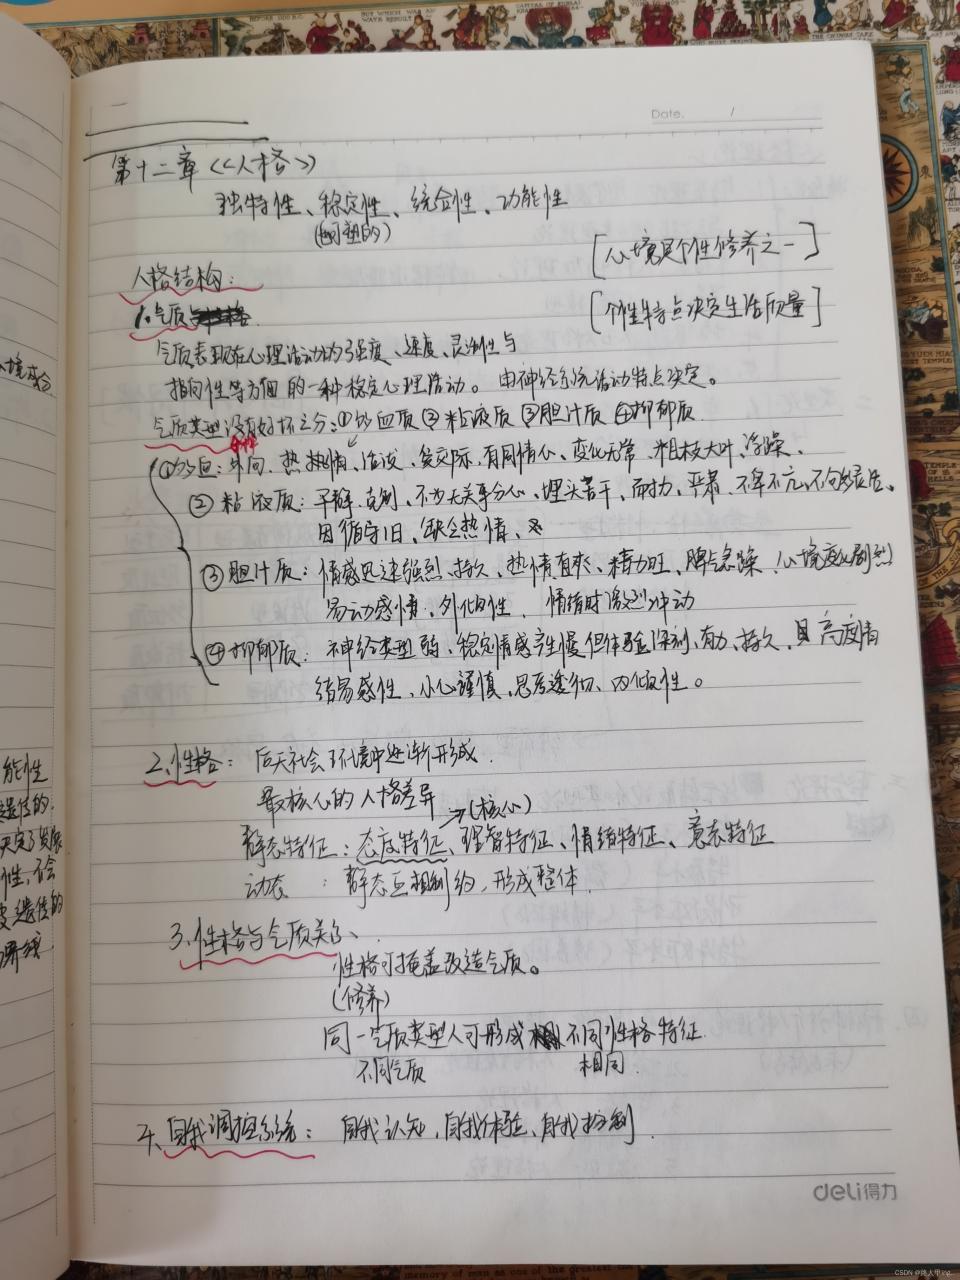 Date.        /
第十二章《人格》
独特性、稳定性、统合性、功能性
(可塑的)
[心境是个性修养之一]
人格结构：
[个性特点决定生活质量]
1.气质
气质表现在心理活动的强度、速度、灵活性与
指向性等方面的一种稳定心理活动。由神经系统活动特点决定。
气质类型没有好坏之分：①多血质 ②粘液质 ③胆汁质 ④抑郁质
①多血：外向、热情、活泼、善交际、有同情心、变化无常、粗枝大叶、浮躁、
②粘液质：平静、克制、不为无关事分心、埋头苦干、耐力、严肃、不卑不亢、不
因循守旧、缺乏热情、
③胆汁质：情感迅速强烈、持久、热情直爽、精力旺、脾气急躁、心境变化剧烈
易动感情、外倾性、情绪时激烈冲动
④抑郁质：神经类型弱、稳定情感产生慢但体验深刻、有力、持久、且高度情
绪易感性、小心谨慎、思考透彻、内倾性。
2.性格：后天社会环境中逐渐形成.
最核心的人格差异
→(核心)
静态特征：态度特征、理智特征、情绪特征、意志特征
动态：静态互相制约，形成整体.
3.性格与气质关系、
性格可掩盖改造气质。
(修养)
同一气质类型人可形成不同性格特征.
不同气质 相同.
4.自我调控系统：自我认知，自我体验，自我控制.
deli得力
能性
遗传的
CSDN @路人甲ing..